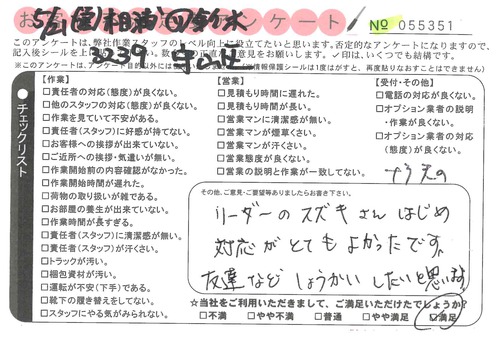 アンケート
№ 055351
このアンケートは、弊社作業スタッフのレベル向上に役立てたいと思います。否定的なアンケートになりますので、
3239
【作業】
□責任者の対応(態度)が良くない。
□他のスタッフの対応(態度)が良くない。
□作業を見ていて不安がある。
□責任者(スタッフ)に好感が持てない。
□お客様への挨拶が出来ていない。
□ご近所への挨拶・気遣いが無い。
□作業開始前の内容確認がなかった。
□作業開始時間が遅れた。
□荷物の取り扱いが雑である。
□お部屋の養生が出来ていない。
□作業時間が長すぎる。
□責任者(スタッフ)に清潔感が無い。
□責任者(スタッフ)が汗くさい。
□トラックが汚い。
□梱包資材が汚い。
□運転が不安(下手)である。
□靴下の履き替えをしてない。
□スタッフにやる気がみられない。
チェックリスト
【営業】
□見積もり時間に遅れた。
□見積もり時間が長い。
□営業マンに清潔感が無い。
□営業マンが煙草くさい。
□営業マンが汗くさい。
□営業態度が良くない。
□営業の説明と作業が一致してない。
【受付・その他】
□電話の対応が良くない。
□オプション業者の説明
・作業が良くない。
□オプション業者の対応
(態度)が良くない。
その他、ご意見・ご要望等ありましたらお書き下さい。
リーダーのスズキさんはじめ
対応がとてもよかったです。
友達などしょうかいしたいと思います。
☆当社をご利用いただきまして、ご満足いただけたでしょうか?
□不満 □やや不満 □普通 □やや満足 ☑満足